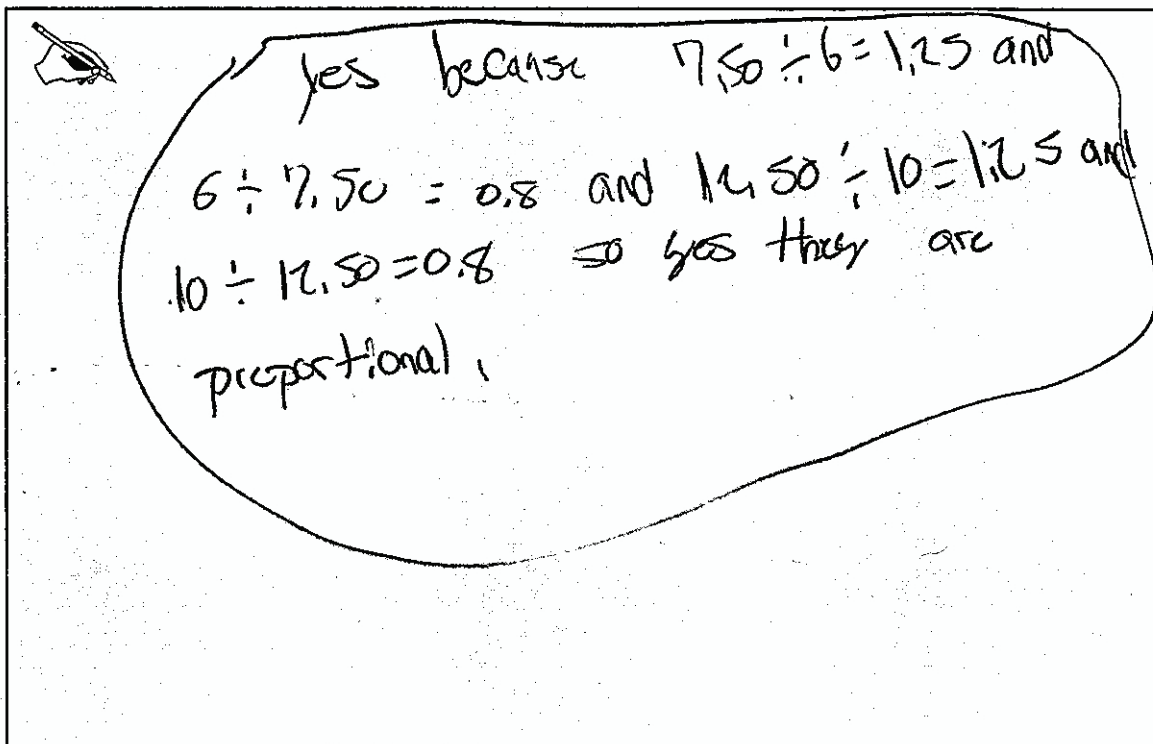 yes because 7.50 ÷ 6 = 1.25 and
6 ÷ 7.50 = 0.8 and 12.50 ÷ 10 = 1.25 and
10 ÷ 12.50 = 0.8 so yes they are
proportional.